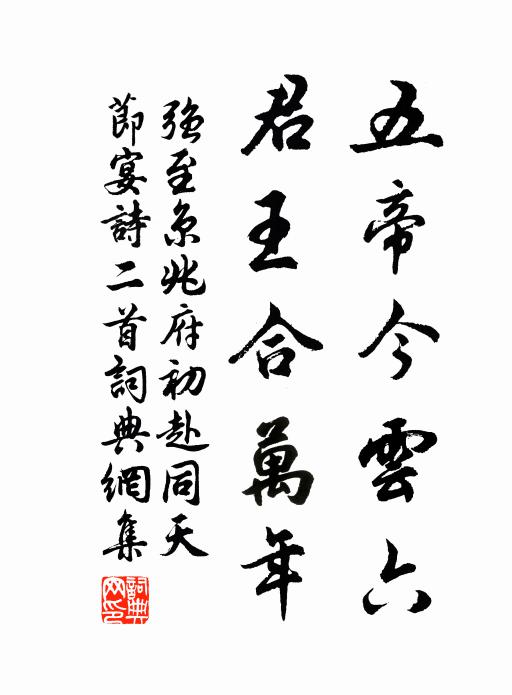 五帝今雲六
君王合萬年
強至京兆府初赴同天
節宴詩二首詞典網集
詞典網印